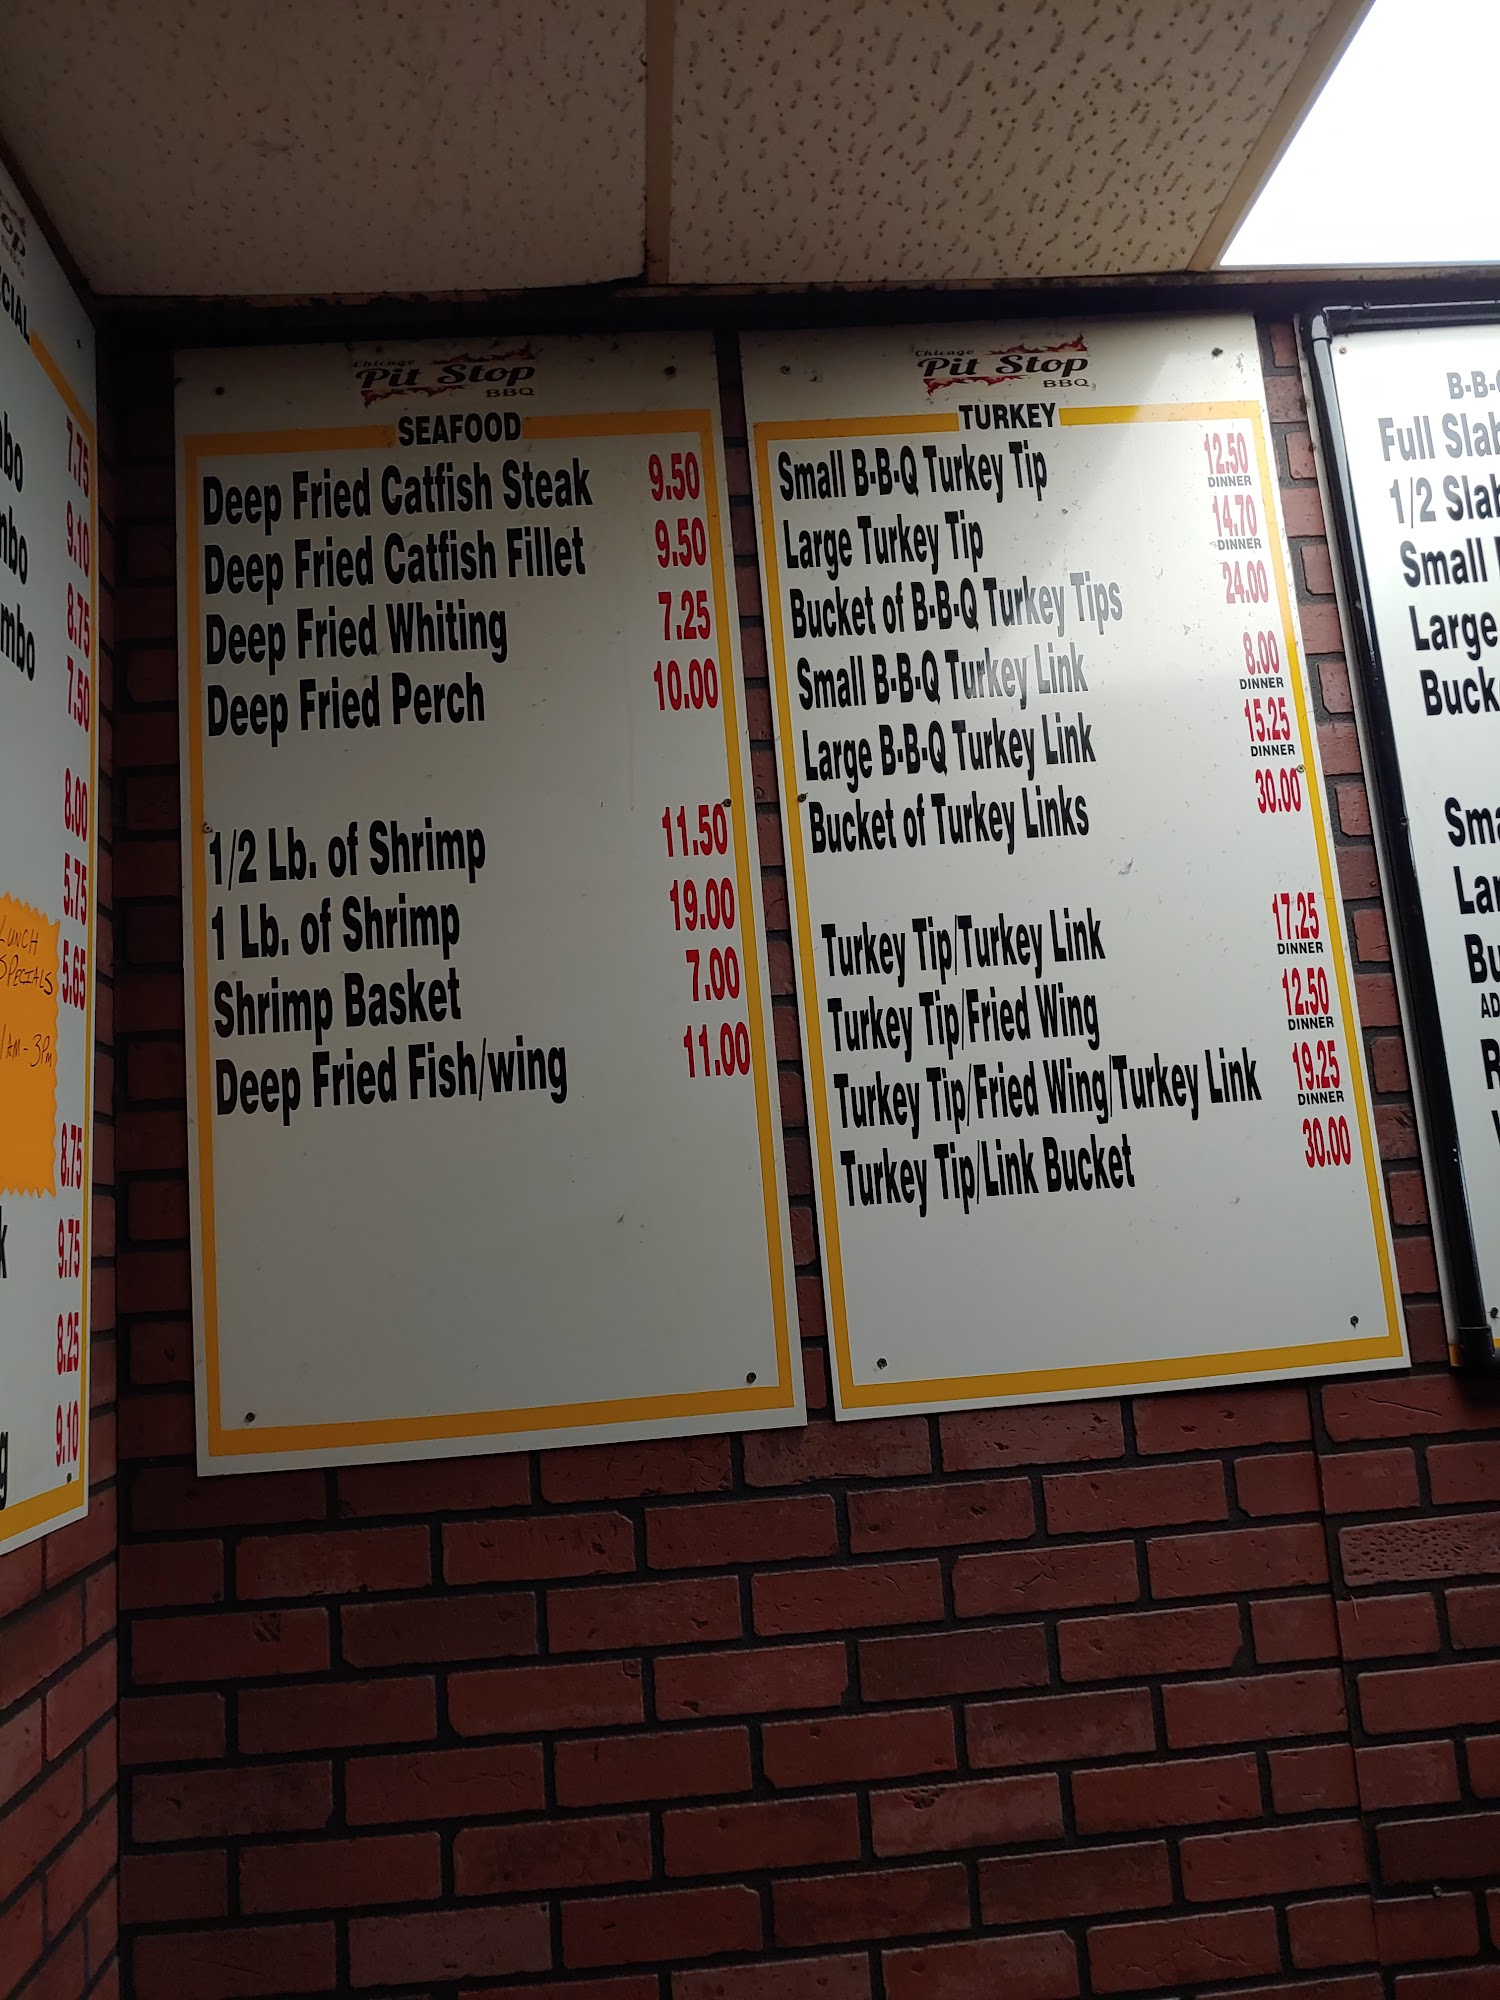 CIAL
7.75
9.10
8.75
7.50
8.00
5.75
5.65
LUNCH
SPECIALS
8.75
9.75
8.25
9.10
Chicago
Pit Stop
BBQ
SEAFOOD
Deep Fried Catfish Steak 9.50
Deep Fried Catfish Fillet 9.50
Deep Fried Whiting 7.25
Deep Fried Perch 10.00
1/2 Lb. of Shrimp 11.50
1 Lb. of Shrimp 19.00
Shrimp Basket 7.00
Deep Fried Fish/wing 11.00
Chicago
Pit Stop
BBQ
TURKEY
Small B-B-Q Turkey Tip 12.50
DINNER
Large Turkey Tip 14.70
DINNER
Bucket of B-B-Q Turkey Tips 24.00
Small B-B-Q Turkey Link 8.00
DINNER
Large B-B-Q Turkey Link 15.25
DINNER
Bucket of Turkey Links 30.00
Turkey Tip/Turkey Link 17.25
DINNER
Turkey Tip/Fried Wing 12.50
DINNER
Turkey Tip/Fried Wing/Turkey Link 19.25
DINNER
Turkey Tip/Link Bucket 30.00
Full Slab
1/2 Slab
Small
Large